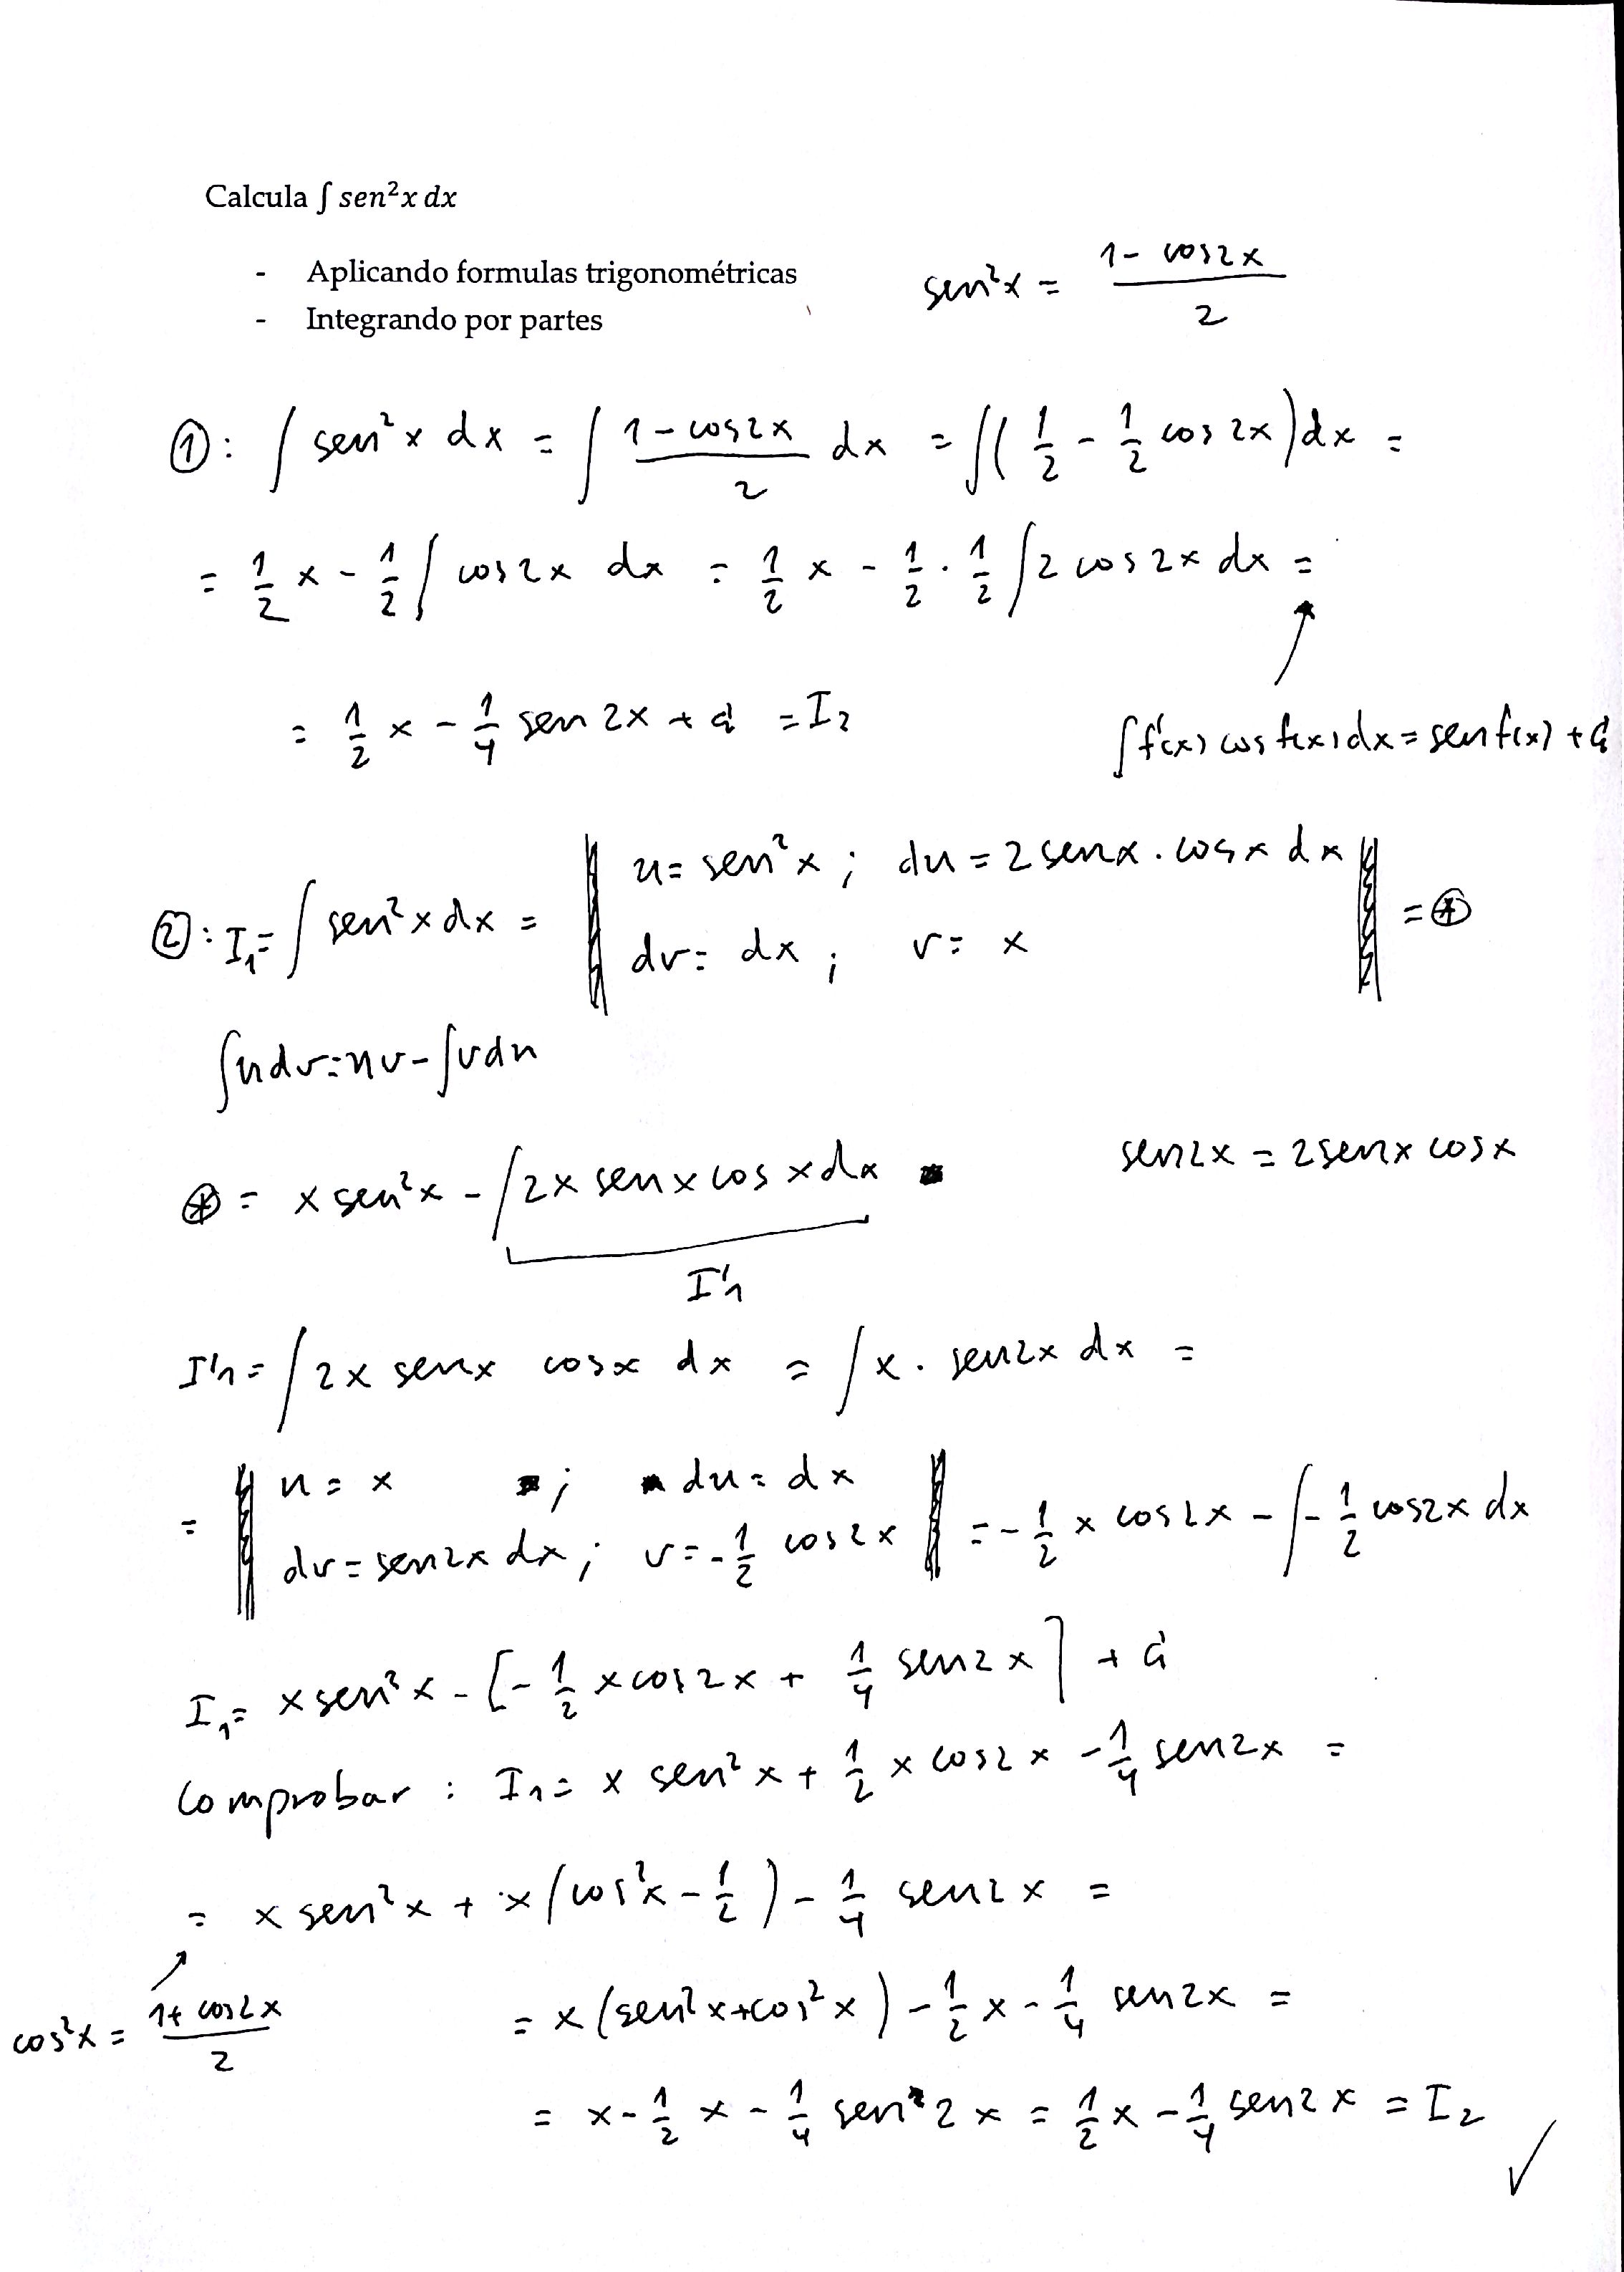 Calcula ∫ sen²x dx
- Aplicando formulas trigonométricas
- Integrando por partes
sen²x = (1 - cos2x)/2
①: ∫ sen²x dx = ∫ (1 - cos2x)/2 dx = ∫(1/2 - 1/2 cos 2x)dx =
= 1/2 x - 1/2 ∫ cos2x dx = 1/2 x - 1/2 · 1/2 ∫ 2 cos2x dx =
= 1/2 x - 1/4 sen 2x + C = I₂
∫f'(x) cos f(x) dx = sen f(x) + C
②: I₁ = ∫ sen²x dx = || u = sen²x ; du = 2 senx · cosx dx
dv = dx ; v = x || = ⊛
∫udv = uv - ∫vdu
⊛ = x sen²x - ∫2x senx cos x dx
sen2x = 2senx cosx
I'₁
I'₁ = ∫ 2x senx cosx dx = ∫ x · sen2x dx =
= || u = x ; du = dx
dv = sen2x dx ; v = -1/2 cos2x || = -1/2 x cos2x - ∫ -1/2 cos2x dx
I₁ = x sen²x - [-1/2 x cos2x + 1/4 sen2x] + C
Comprobar : I₁ = x sen²x + 1/2 x cos2x - 1/4 sen2x =
= x sen²x + x(cos²x - 1/2) - 1/4 sen2x =
cos²x = (1 + cos2x)/2
= x (sen²x + cos²x) - 1/2 x - 1/4 sen2x =
= x - 1/2 x - 1/4 sen 2x = 1/2 x - 1/4 sen2x = I₂ ✓